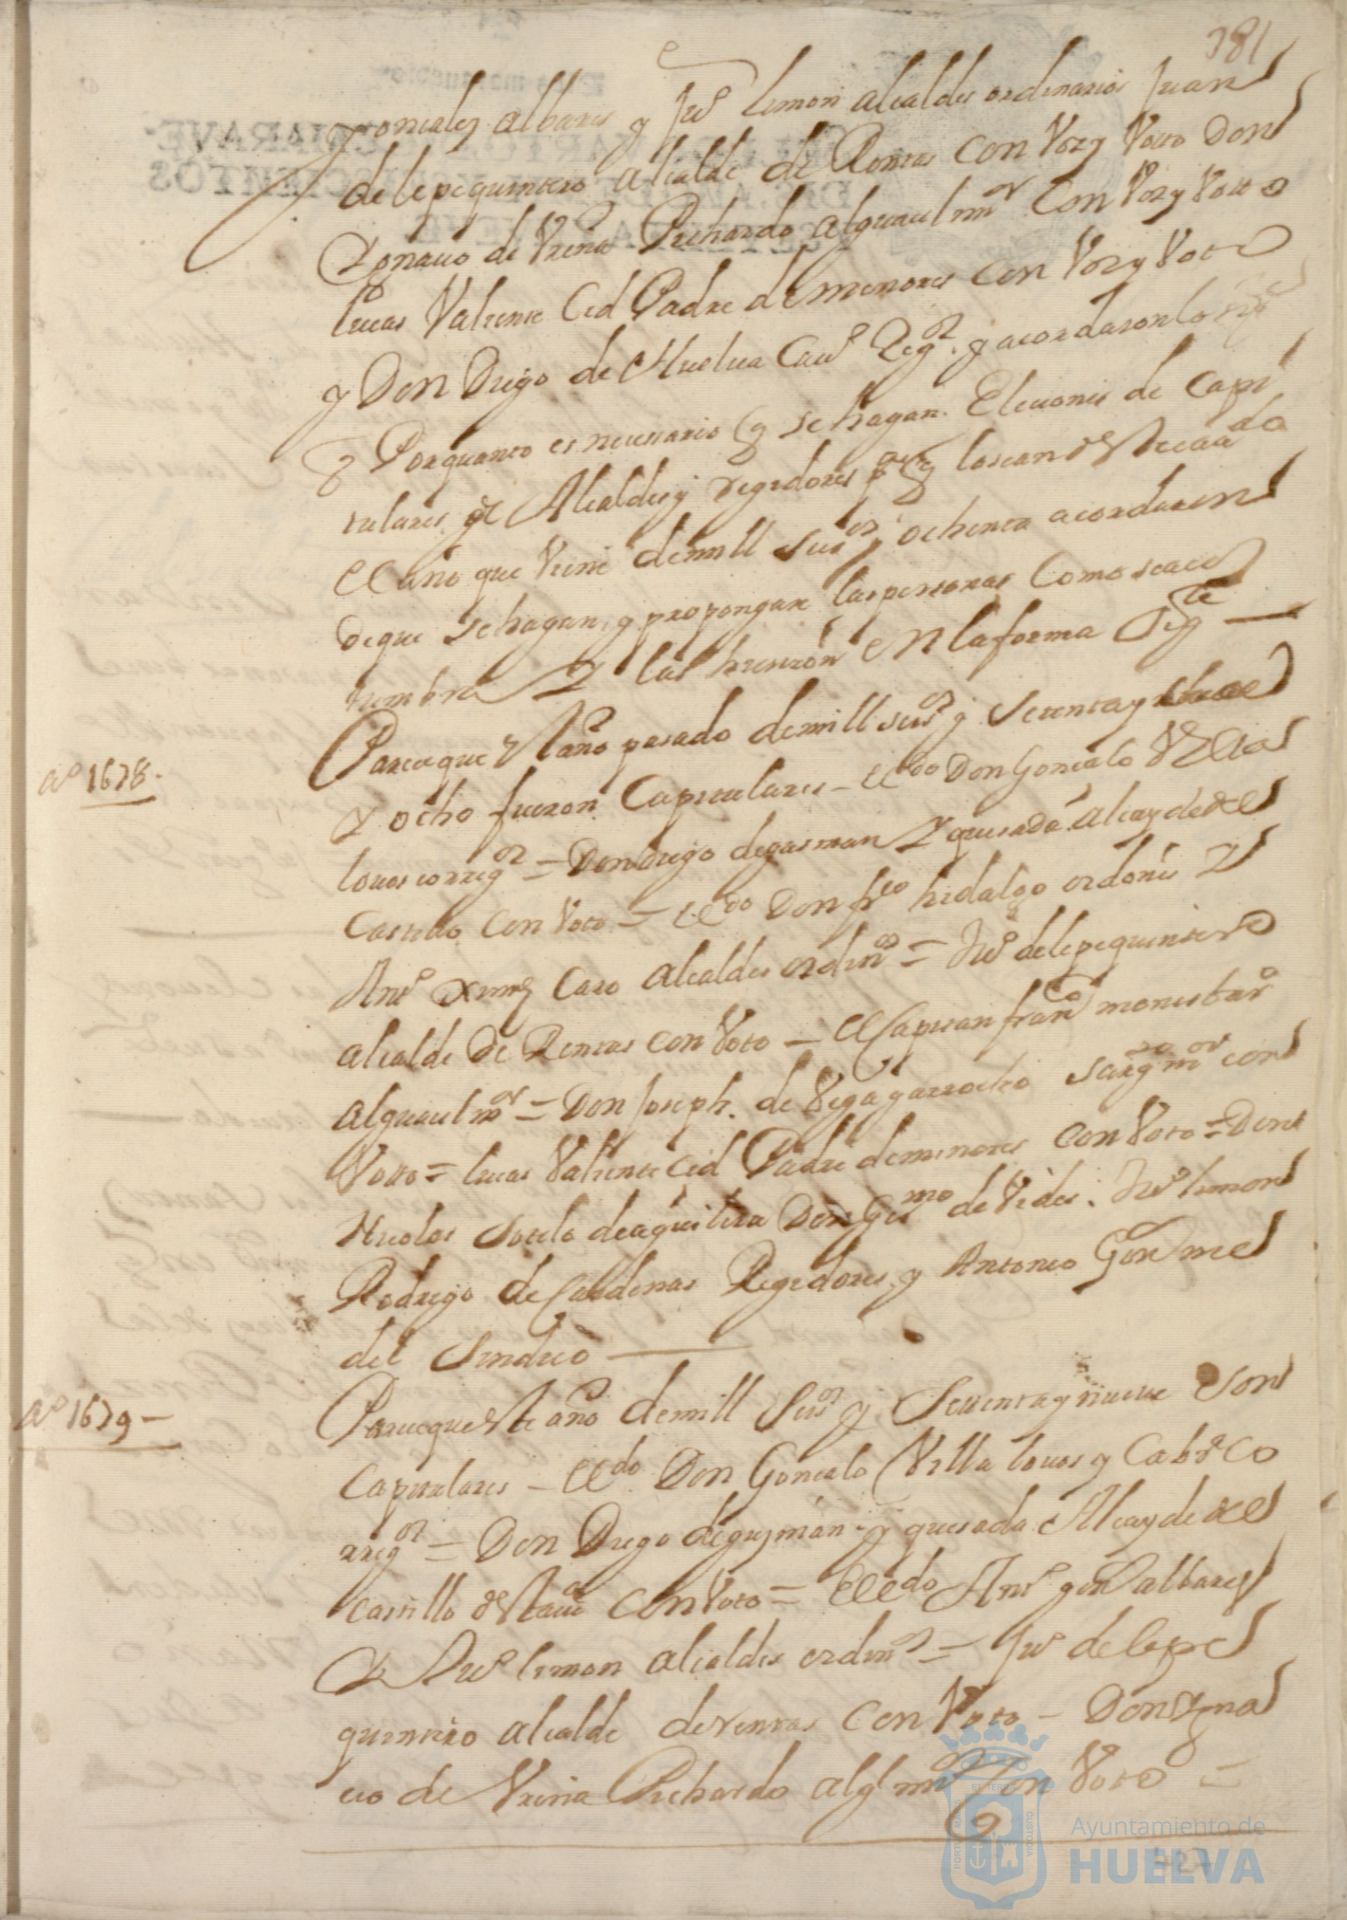 381
gonsales albares y Juº limon alcaldes ordinarios Juan
de lepe quintero alcalde de Rentas con Voz y Voto Don
Ygnacio de Vreña Pichardo alguacil mºr con Voz y Voto
lucas Valiente Cid Padre de menores con Voz y Voto
y Don Diego de Huelva Cauº Regºr y acordaron lo sigte
Porquanto es necessario q se hagan Eleciones de Capi
tulares de Alcaldes y regidores pª q lo sean de esta villa
el año que viene de mill seisºs y ochenta acordaron
de que se hagan y propongan las personas como se acos
tumbra Y las hicieron en la forma sigte
Parece que el año pasado de mill seisºs y setenta y
Y ocho fueron Capitulares - el Ldo Don Gonçalo Villa
louos corregºr = Don diego de gusman Y quesada Alcayde del
Castillo con Voto = el Ldo Don frco hidalgo ordoñes Y
Antº Ximz Caro alcaldes ordinºs = Juº de lepe quintero
alcalde de Rentas con Voto - el Capitan franco monesterº
alguacil mºr = Don Joseph. de Vega garrocho sargto mºr con
Voto = lucas Valiente Cid Padre de menores con Voto = Don
Nicolas Sotelo de aguilera Don Germo de Vides. Juº limon
Rodrigo de Cardenas Regidores y Antonio Gon mel
del Sindico
Aº 1678.
Parece que este año de mill seisºs y setenta y nueue son
Capitulares - el Ldo Don Gonçalo Villa louos y Cabrº Co
rregºr = Don Diego de guzmán y quesada Alcayde del
Castillo de esta vª con Voto = el Ldo Antº gon albares
Y Juº limon alcaldes ordinºs = Juº de lepe
quintero alcalde de rentas con Voto - Don Ygna
cio de Vreña Pichardo algl mºr con Voto =
Aº 1679 -
Ayuntamiento de
HUELVA